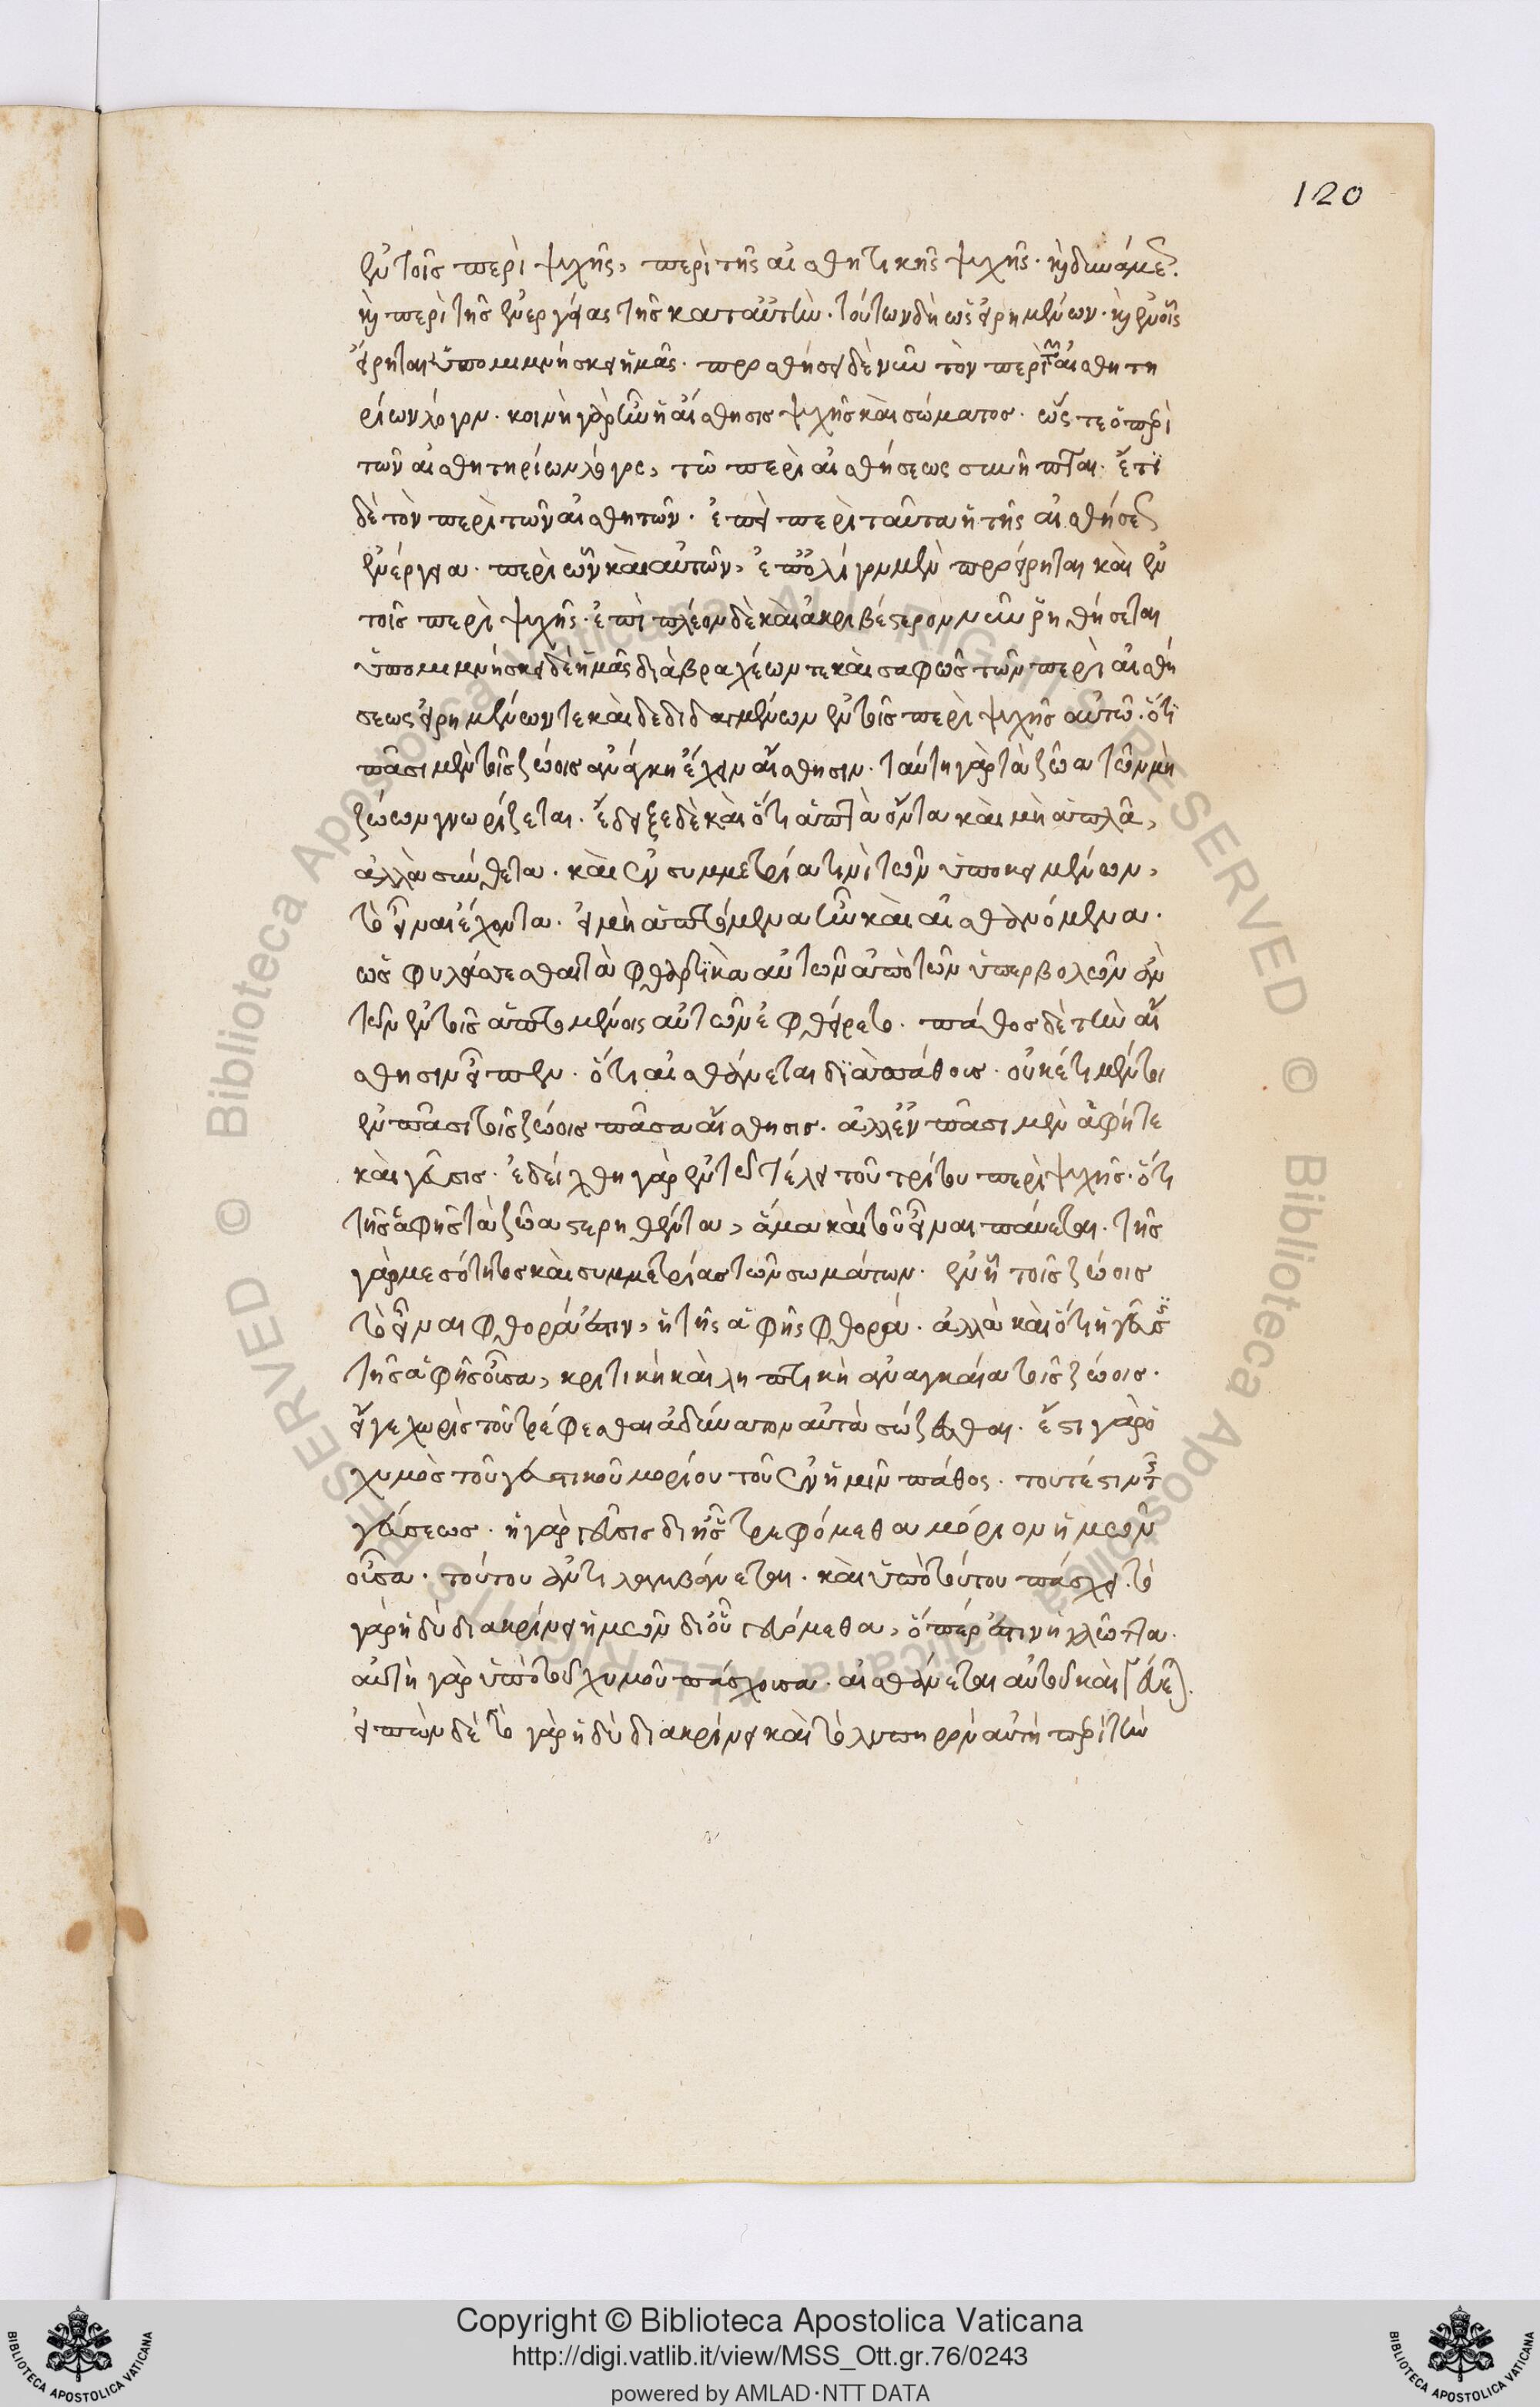 120
ἐν τοῖς περὶ ψυχῆς, περὶ τῆς αἰσθητικῆς ψυχῆς. καὶ δυνάμεως.
καὶ περὶ τῆς ἐνεργείας τῆς κατ' αὐτήν. τούτων δὴ ὡς εἰρημένων. καὶ ἐν οἷς
εἴρηται ὑπομιμνήσκει ἡμᾶς. προσθήσει δὲ νῦν τὸν περὶ τῶν αἰσθητη
ρίων λόγον. κοινὴ γὰρ ἦν ἡ αἴσθησις ψυχῆς καὶ σώματος. ὥστε ὁ περὶ
τῶν αἰσθητηρίων λόγος, τῶ περὶ αἰσθήσεως συνῆπται. ἔτι
δὲ τὸν περὶ τῶν αἰσθητῶν. ἐπεὶ περὶ ταῦτα ἡ τῆς αἰσθήσεως
ἐνέργεια. περὶ ὧν καὶ αὐτῶν, ἐπ' ὀλίγον μὲν προείρηται καὶ ἐν
τοῖς περὶ ψυχῆς. ἐπὶ πλέον δὲ καὶ ἀκριβέστερον νῦν ῥηθήσεται
ὑπομιμνήσκει δὲ ἡμᾶς διὰ βραχέων τε καὶ σαφῶς τῶν περὶ αἰσθή
σεως εἰρημένων τε καὶ δεδειγμένων ἐν τοῖς περὶ ψυχῆς αὐτῶ. ὅτι
πᾶσι μὲν τοῖς ζώοις ἀνάγκη ἔχειν αἴσθησιν. ταύτη γὰρ τὰ ζῶα τῶν μὴ
ζώων γνωρίζεται. ἔδειξε δὲ καὶ ὅτι ἁπτὰ ὄντα καὶ μὴ ἁπλᾶ,
ἀλλὰ σύνθετα. καὶ ἐν συμμετρία τινὶ τῶν ὑποκειμένων,
τὸ εἶναι ἔχοντα. εἰ μὴ ἁπτόμενα ἦν καὶ αἰσθανόμενα.
ὡς φυλάσσεσθαι τὰ φθαρτικὰ αὐτῶν ἀπὸ τῶν ὑπερβολῶν
τῶν ἐν τοῖς ἁπτομένοις αὐτῶν ἐφθείρετο. πάθος δὲ τὴν αἴ
σθησιν εἶπεν. ὅτι αἰσθάνεται διὰ πάθους. οὐκέτι μέντοι
ἐν πᾶσι τοῖς ζώοις πᾶσα αἴσθησις. ἀλλ' ἐν πᾶσι μὲν ἁφή τε
καὶ γεῦσις. ἐδείχθη γὰρ ἐν τῶ τέλει τοῦ τρίτου περὶ ψυχῆς. ὅτι
τῆς ἁφῆς τὰ ζῶα στερηθέντα, ἅμα καὶ τοῦ εἶναι παύεται. τῆς
γὰρ μεσότητος καὶ συμμετρίας τῶν σωμάτων. ἐν ἧ τοῖς ζώοις
τὸ εἶναι φθορά ἐστιν, ἡ τῆς ἁφῆς φθορά. ἀλλὰ καὶ ὅτι ἡ γεῦσις
τῆς ἁφῆς οὖσα, κριτικὴ καὶ ληπτικὴ ἀναγκαία τοῖς ζώοις.
εἴγε χωρὶς τοῦ τρέφεσθαι ἀδύνατον αὐτὰ σώζεσθαι. ἔστι γὰρ ὁ
χυμὸς τοῦ γευστικοῦ μορίου τοῦ ἐν ἡμῖν πάθος. τουτέστιν τῆς
γεύσεως. ἡ γὰρ γεῦσις δι' ἧς τρεφόμεθα μόριον ἡμῶν
οὖσα. τούτου ἀντιλαμβάνεται. καὶ ὑπὸ τούτου πάσχει. τὸ
γὰρ ἡδὺ διακρίνει ἡμῶν δι' οὗ γευόμεθα, ὅπερ ἐστὶν ἡ γλῶττα.
αὐτὴ γὰρ ὑπὸ τοῦ χυμοῦ πάσχουσα. αἰσθάνεται αὐτοῦ καὶ γεύεται.
εἰπὼν δὲ τὸ γὰρ ἡδὺ διακρίνει καὶ τὸ λυπηρὸν αὐτὴ περὶ τὴν
Copyright © Biblioteca Apostolica Vaticana
http://digi.vatlib.it/view/MSS_Ott.gr.76/0243
powered by AMLAD·NTT DATA